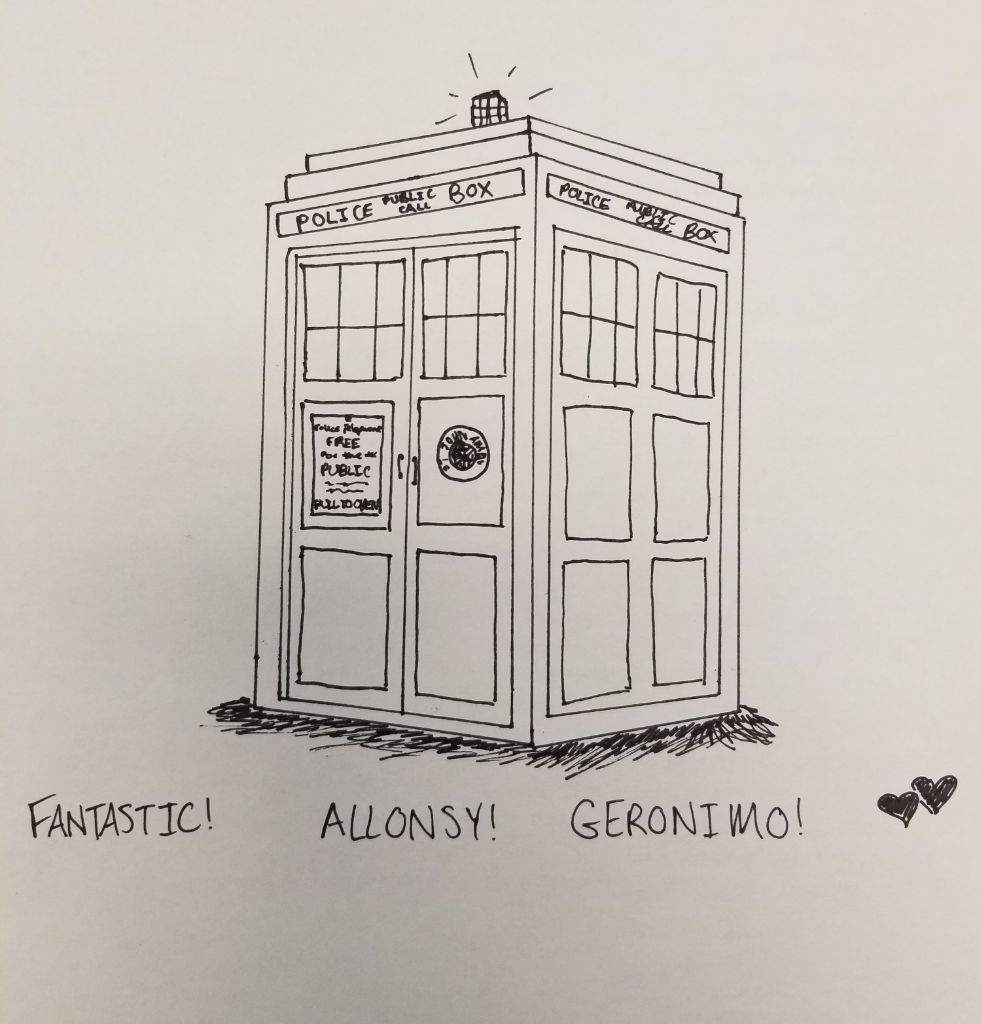 POLICE PUBLIC CALL BOX
POLICE PUBLIC CALL BOX
Police Telephone
FREE
For the use
PUBLIC
PULL TO OPEN
ST JOHN AMBU
FANTASTIC! ALLONSY! GERONIMO!